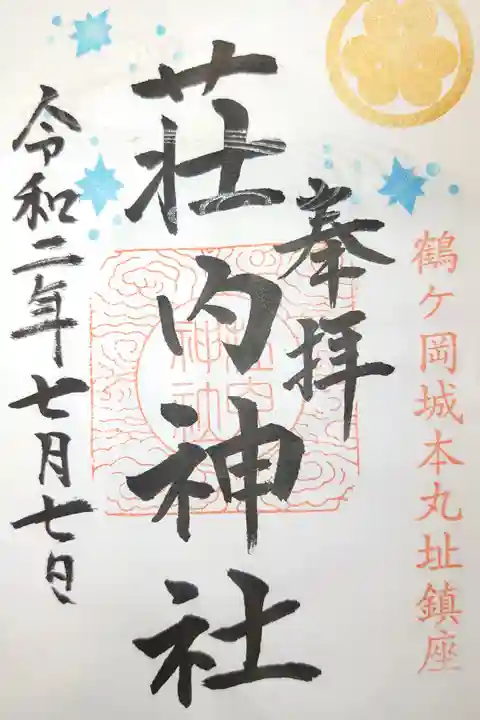 鶴ヶ岡城本丸址鎮座
奉拝
荘内神社
荘内神社
令和二年七月七日